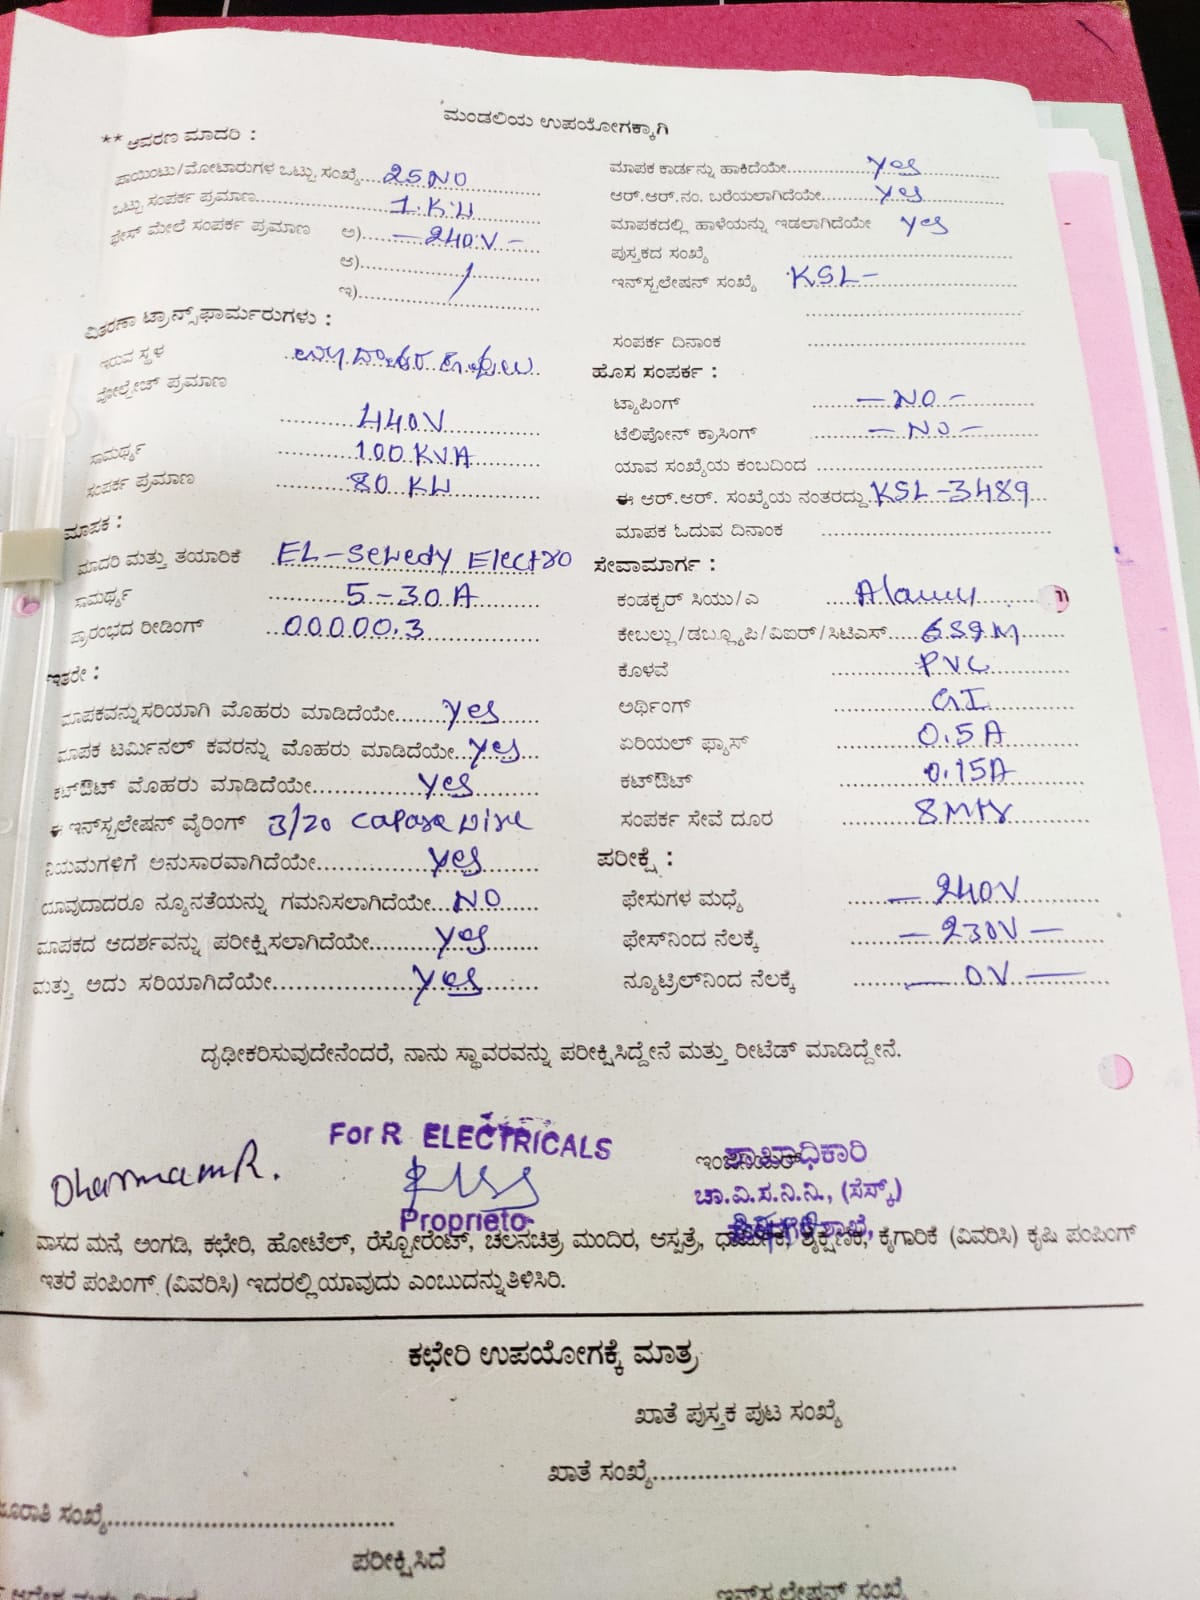 ಮಂಡಲಿಯ ಉಪಯೋಗಕ್ಕಾಗಿ
** ಆವರಣ ಮಾದರಿ :
ಪಾಯಿಂಟು/ಮೋಟಾರುಗಳ ಒಟ್ಟು ಸಂಖ್ಯೆ....25 NO
ಒಟ್ಟು ಸಂಪರ್ಕ ಪ್ರಮಾಣ....1.KW
ಫೇಸ್ ಮೇಲೆ ಸಂಪರ್ಕ ಪ್ರಮಾಣ ಅ)..—240V—
ಆ)....
ಇ)....
ವಿತರಣಾ ಟ್ರಾನ್ಸ್‌ಫಾರ್ಮರುಗಳು :
ಇರುವ ಸ್ಥಳ
ವೋಲ್ಟೇಜ್ ಪ್ರಮಾಣ
440V
ಸಾಮರ್ಥ್ಯ 100 KVA
ಸಂಪರ್ಕ ಪ್ರಮಾಣ 80 KW
ಮಾಪಕ :
ಮಾದರಿ ಮತ್ತು ತಯಾರಿಕೆ EL-Sewedy Electro
ಸಾಮರ್ಥ್ಯ 5-30A
ಪ್ರಾರಂಭದ ರೀಡಿಂಗ್ 00000.3
ಇತರೇ :
ಮಾಪಕವನ್ನು ಸರಿಯಾಗಿ ಮೊಹರು ಮಾಡಿದೆಯೇ....yes
ಮಾಪಕ ಟರ್ಮಿನಲ್ ಕವರನ್ನು ಮೊಹರು ಮಾಡಿದೆಯೇ..yes
ಕಟ್‌ಔಟ್ ಮೊಹರು ಮಾಡಿದೆಯೇ....yes
ಈ ಇನ್‌ಸ್ಟಲೇಷನ್ ವೈರಿಂಗ್ 3/20 wire
ನಿಯಮಗಳಿಗೆ ಅನುಸಾರವಾಗಿದೆಯೇ....yes
ಯಾವುದಾದರೂ ನ್ಯೂನತೆಯನ್ನು ಗಮನಿಸಲಾಗಿದೆಯೇ...NO
ಮಾಪಕದ ಆದರ್ಶವನ್ನು ಪರೀಕ್ಷಿಸಲಾಗಿದೆಯೇ....yes
ಮತ್ತು ಅದು ಸರಿಯಾಗಿದೆಯೇ....yes
ಮಾಪಕ ಕಾರ್ಡನ್ನು ಹಾಕಿದೆಯೇ....yes
ಆರ್.ಆರ್.ನಂ. ಬರೆಯಲಾಗಿದೆಯೇ....yes
ಮಾಪಕದಲ್ಲಿ ಹಾಳೆಯನ್ನು ಇಡಲಾಗಿದೆಯೇ yes
ಪುಸ್ತಕದ ಸಂಖ್ಯೆ
ಇನ್‌ಸ್ಟಲೇಷನ್ ಸಂಖ್ಯೆ KSL-
ಸಂಪರ್ಕ ದಿನಾಂಕ
ಹೊಸ ಸಂಪರ್ಕ :
ಟ್ಯಾಪಿಂಗ್ —NO—
ಟೆಲಿಪೋನ್ ಕ್ರಾಸಿಂಗ್ —NO—
ಯಾವ ಸಂಖ್ಯೆಯ ಕಂಬದಿಂದ
ಈ ಆರ್.ಆರ್. ಸಂಖ್ಯೆಯ ನಂತರದ್ದು KSL-3489
ಮಾಪಕ ಓದುವ ದಿನಾಂಕ
ಸೇವಾಮಾರ್ಗ :
ಕಂಡಕ್ಟರ್ ಸಿಯು/ಎ
ಕೇಬಲ್ಲು/ಡಬ್ಲ್ಯೂಪಿ/ವಿಐರ್/ಸಿಟಿಎಸ್....
ಕೊಳವೆ PVC
ಅರ್ಥಿಂಗ್ GI
ಏರಿಯಲ್ ಫ್ಯೂಸ್ 0.5A
ಕಟ್‌ಔಟ್ 0.15A
ಸಂಪರ್ಕ ಸೇವೆ ದೂರ 8Mtr
ಪರೀಕ್ಷೆ :
ಫೇಸುಗಳ ಮಧ್ಯೆ —240V
ಫೇಸ್‌ನಿಂದ ನೆಲಕ್ಕೆ —230V—
ನ್ಯೂಟ್ರಿಲ್‌ನಿಂದ ನೆಲಕ್ಕೆ —0V—
ದೃಢೀಕರಿಸುವುದೇನೆಂದರೆ, ನಾನು ಸ್ಥಾವರವನ್ನು ಪರೀಕ್ಷಿಸಿದ್ದೇನೆ ಮತ್ತು ರೀಟೆಡ್ ಮಾಡಿದ್ದೇನೆ.
For R ELECTRICALS
Proprieto
ಶಾಖಾಧಿಕಾರಿ
ಇಂಜಿನಿಯರ್
ಚಾ.ವಿ.ಸ.ನಿ.ನಿ., (ಸೆಸ್ಕ್)
ವಾಸದ ಮನೆ, ಅಂಗಡಿ, ಕಛೇರಿ, ಹೋಟೆಲ್, ರೆಸ್ಟೋರೆಂಟ್, ಚಲನಚಿತ್ರ ಮಂದಿರ, ಆಸ್ಪತ್ರೆ, ಧಾರ್ಮಿಕ, ಶೈಕ್ಷಣಿಕ, ಕೈಗಾರಿಕೆ (ವಿವರಿಸಿ) ಕೃಷಿ ಪಂಪಿಂಗ್
ಇತರೆ ಪಂಪಿಂಗ್ (ವಿವರಿಸಿ) ಇದರಲ್ಲಿ ಯಾವುದು ಎಂಬುದನ್ನು ತಿಳಿಸಿರಿ.
ಕಛೇರಿ ಉಪಯೋಗಕ್ಕೆ ಮಾತ್ರ
ಖಾತೆ ಪುಸ್ತಕ ಪುಟ ಸಂಖ್ಯೆ
ಖಾತೆ ಸಂಖ್ಯೆ....
ಸಂಖ್ಯೆ....
ಪರೀಕ್ಷಿಸಿದೆ
ಇನ್‌ಸ್ಟಲೇಷನ್ ಸಂಖ್ಯೆ